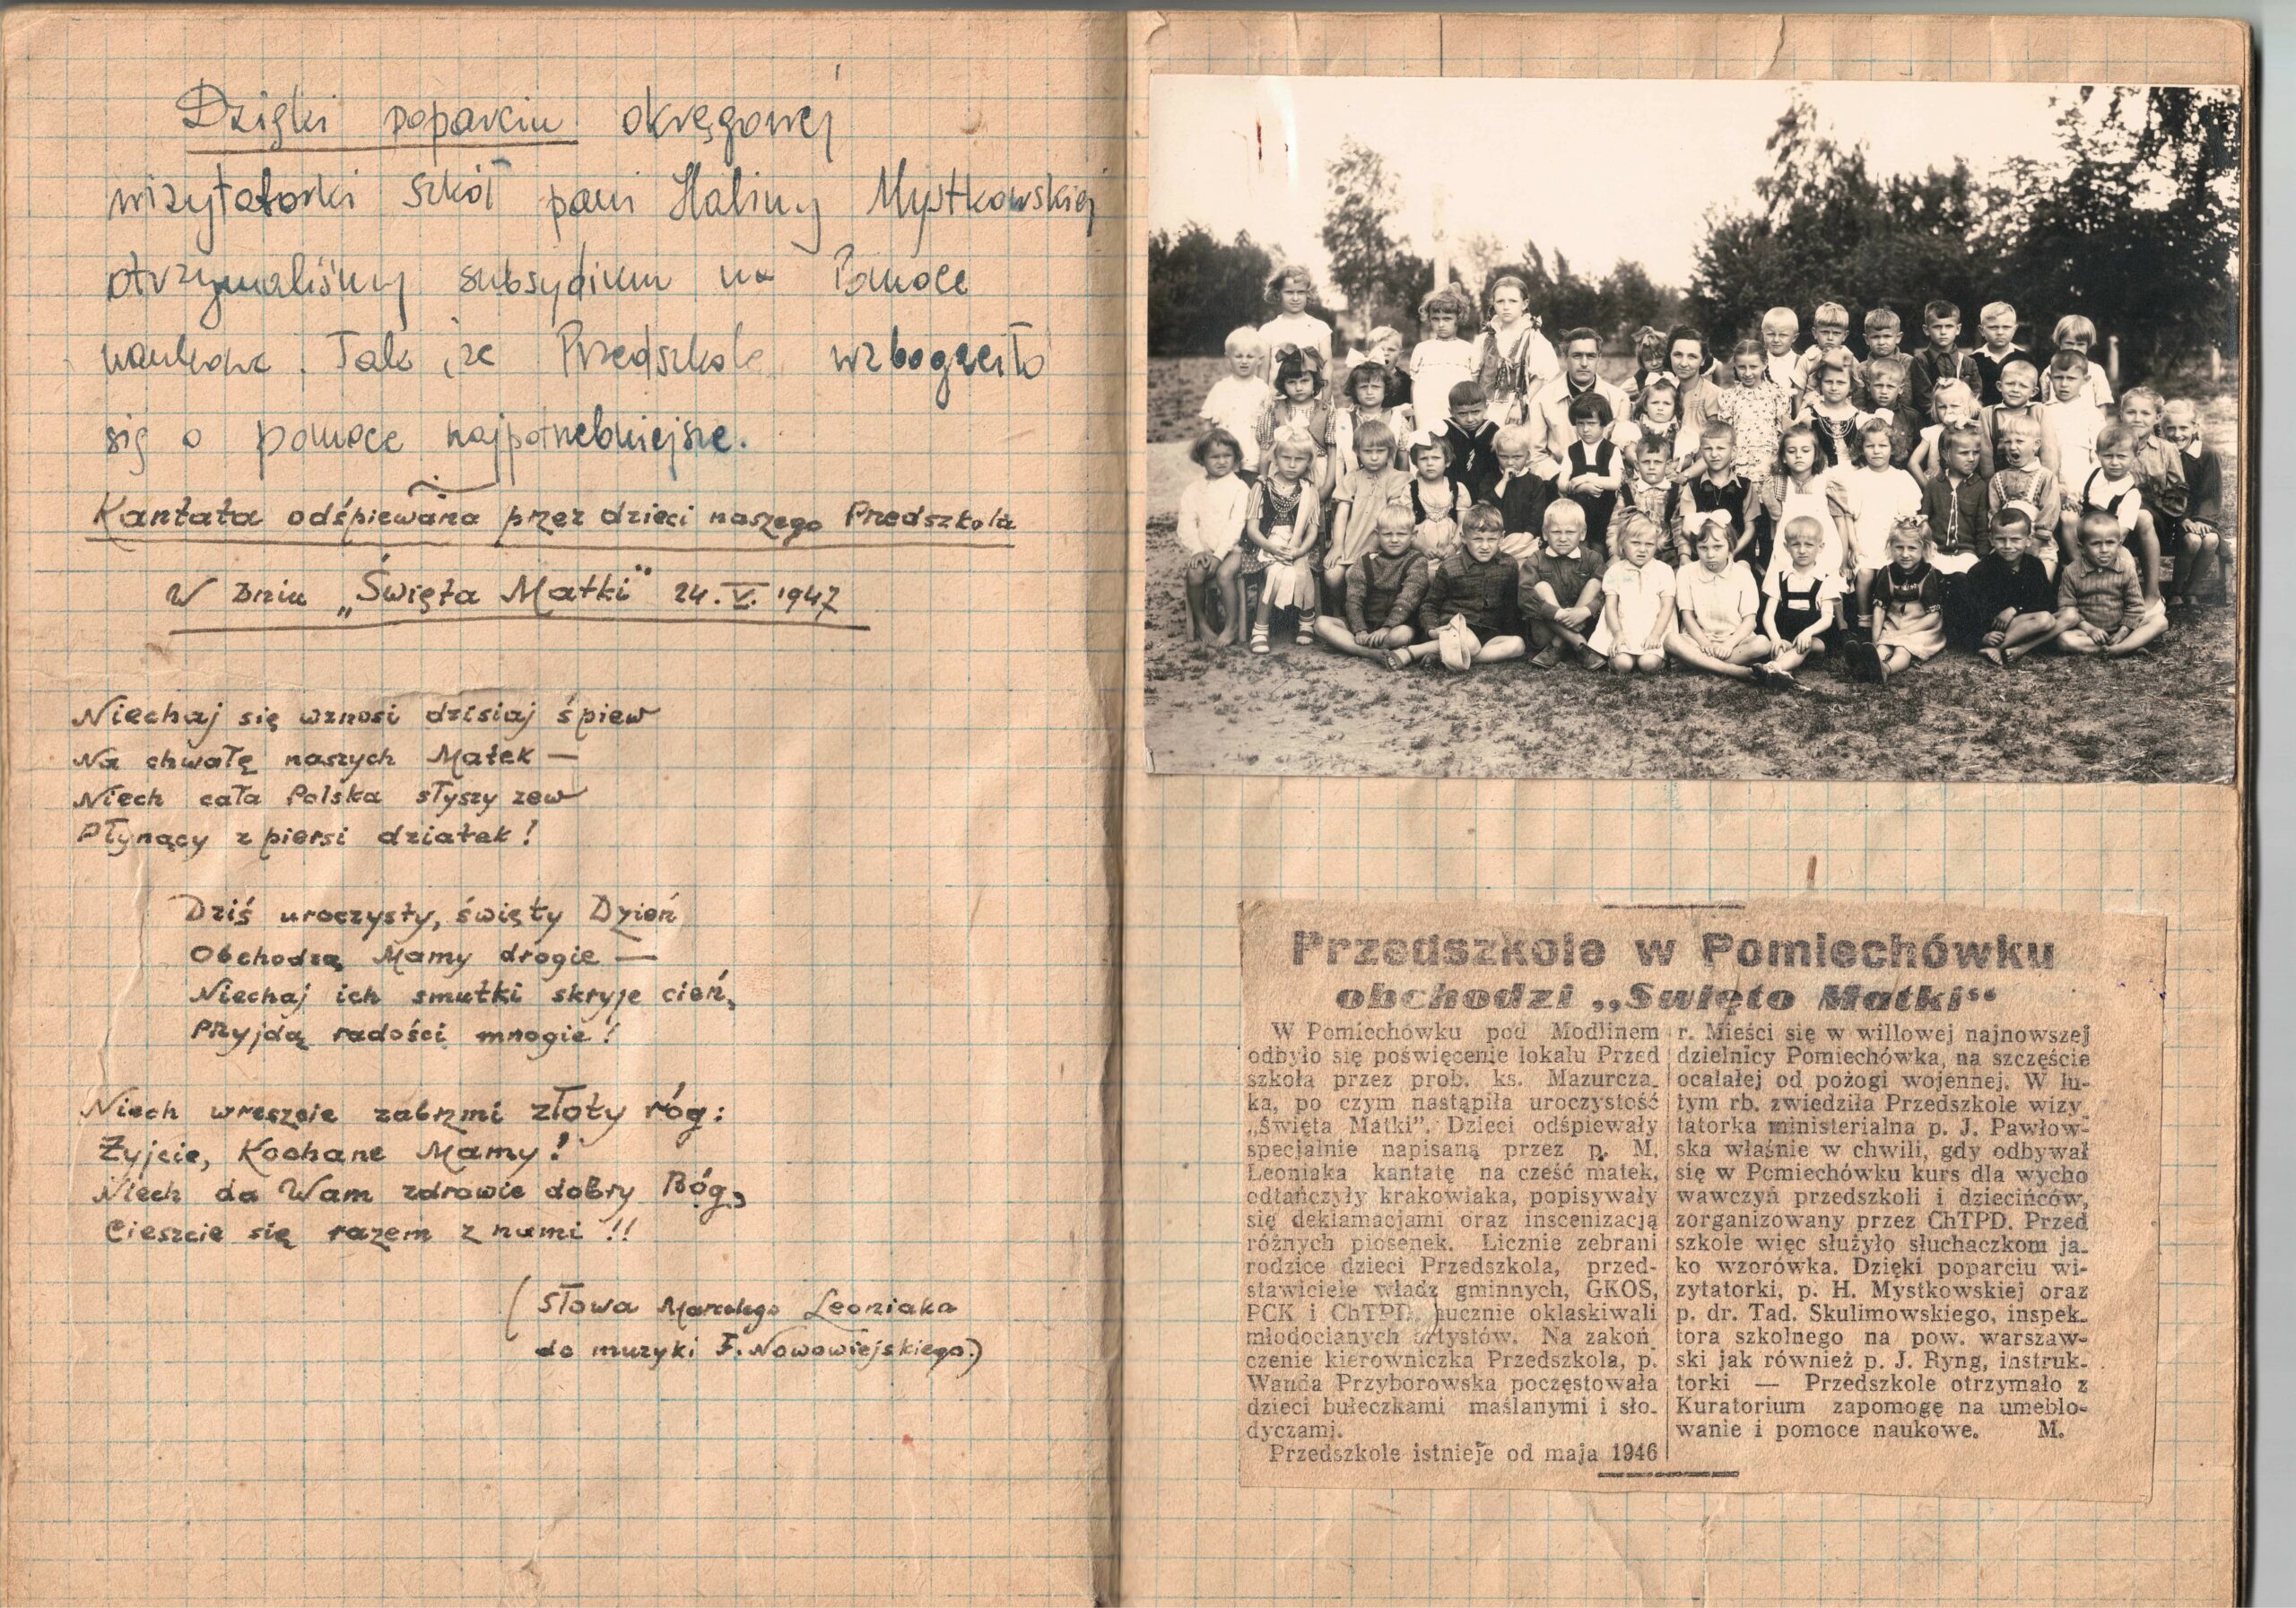 Dzięki poparciu okręgowej
wizytatorki szkół pani Haliny Mystkowskiej
otrzymaliśmy subsydium na Pomoce
naukowe. Tak że Przedszkole wzbogaciło
się o pomoce najpotrzebniejsze.
Kantata odśpiewana przez dzieci naszego Przedszkola
W Dniu „Święta Matki" 24.V.1947
Niechaj się wznosi dzisiaj śpiew
Na chwałę naszych Matek —
Niech cała Polska słyszy zew
Płynący z piersi dziatek!
Dziś uroczysty, święty Dzień
Obchodzą Mamy drogie —
Niechaj ich smutki skryje cień,
Przyjdą radości mnogie!
Niech wreszcie zabrzmi złoty róg:
Żyjcie, Kochane Mamy!
Niech da Wam zdrowie dobry Bóg,
Cieszcie się razem z nami!!
(Słowa Marcelego Leoniaka
do muzyki F. Nowowiejskiego.)
Przedszkole w Pomiechówku
obchodzi „Święto Matki"
W Pomiechówku pod Modlinem
odbyło się poświęcenie lokalu Przed
szkola przez prob. ks. Mazurcza-
ka, po czym nastąpiła uroczystość
„Święta Matki". Dzieci odśpiewały
specjalnie napisaną przez p. M.
Leoniaka kantatę na cześć matek,
odtańczyły krakowiaka, popisywały
się deklamacjami oraz inscenizacją
różnych piosenek. Licznie zebrani
rodzice dzieci Przedszkola, przed-
stawiciele władz gminnych, GKOS,
PCK i ChTPD, hucznie oklaskiwali
młodocianych artystów. Na zakoń
czenie kierowniczka Przedszkola, p.
Wanda Przyborowska poczęstowała
dzieci bułeczkami maślanymi i sło-
dyczami.
Przedszkole istnieje od maja 1946
r. Mieści się w willowej najnowszej
dzielnicy Pomiechówka, na szczęście
ocalałej od pożogi wojennej. W lu-
tym rb. zwiedziła Przedszkole wizy
tatorka ministerialna p. J. Pawłow-
ska właśnie w chwili, gdy odbywał
się w Pomiechówku kurs dla wycho
wawczyń przedszkoli i dziecińców,
zorganizowany przez ChTPD. Przed
szkole więc służyło słuchaczkom ja-
ko wzorówka. Dzięki poparciu wi-
zytatorki, p. H. Mystkowskiej oraz
p. dr. Tad. Skulimowskiego, inspek-
tora szkolnego na pow. warszaw-
ski jak również p. J. Ryng, instruk-
torki — Przedszkole otrzymało z
Kuratorium zapomogę na umeblo-
wanie i pomoce naukowe. M.